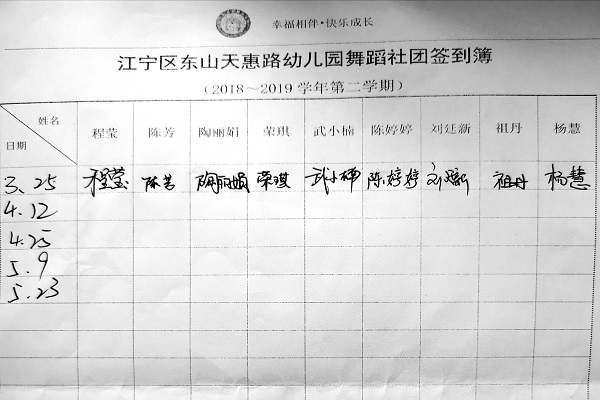 幸福相伴·快乐成长
江宁区东山天惠路幼儿园舞蹈社团签到簿
（2018～2019学年第二学期）
姓名 日期 程莹 陈芳 陶丽娟 荣琪 武小楠 陈婷婷 刘廷新 祖丹 杨慧
3.25 程莹 陈芳 陶丽娟 荣琪 武小楠 陈婷婷 刘廷新 祖丹 杨慧
4.12
4.25
5.9
5.23